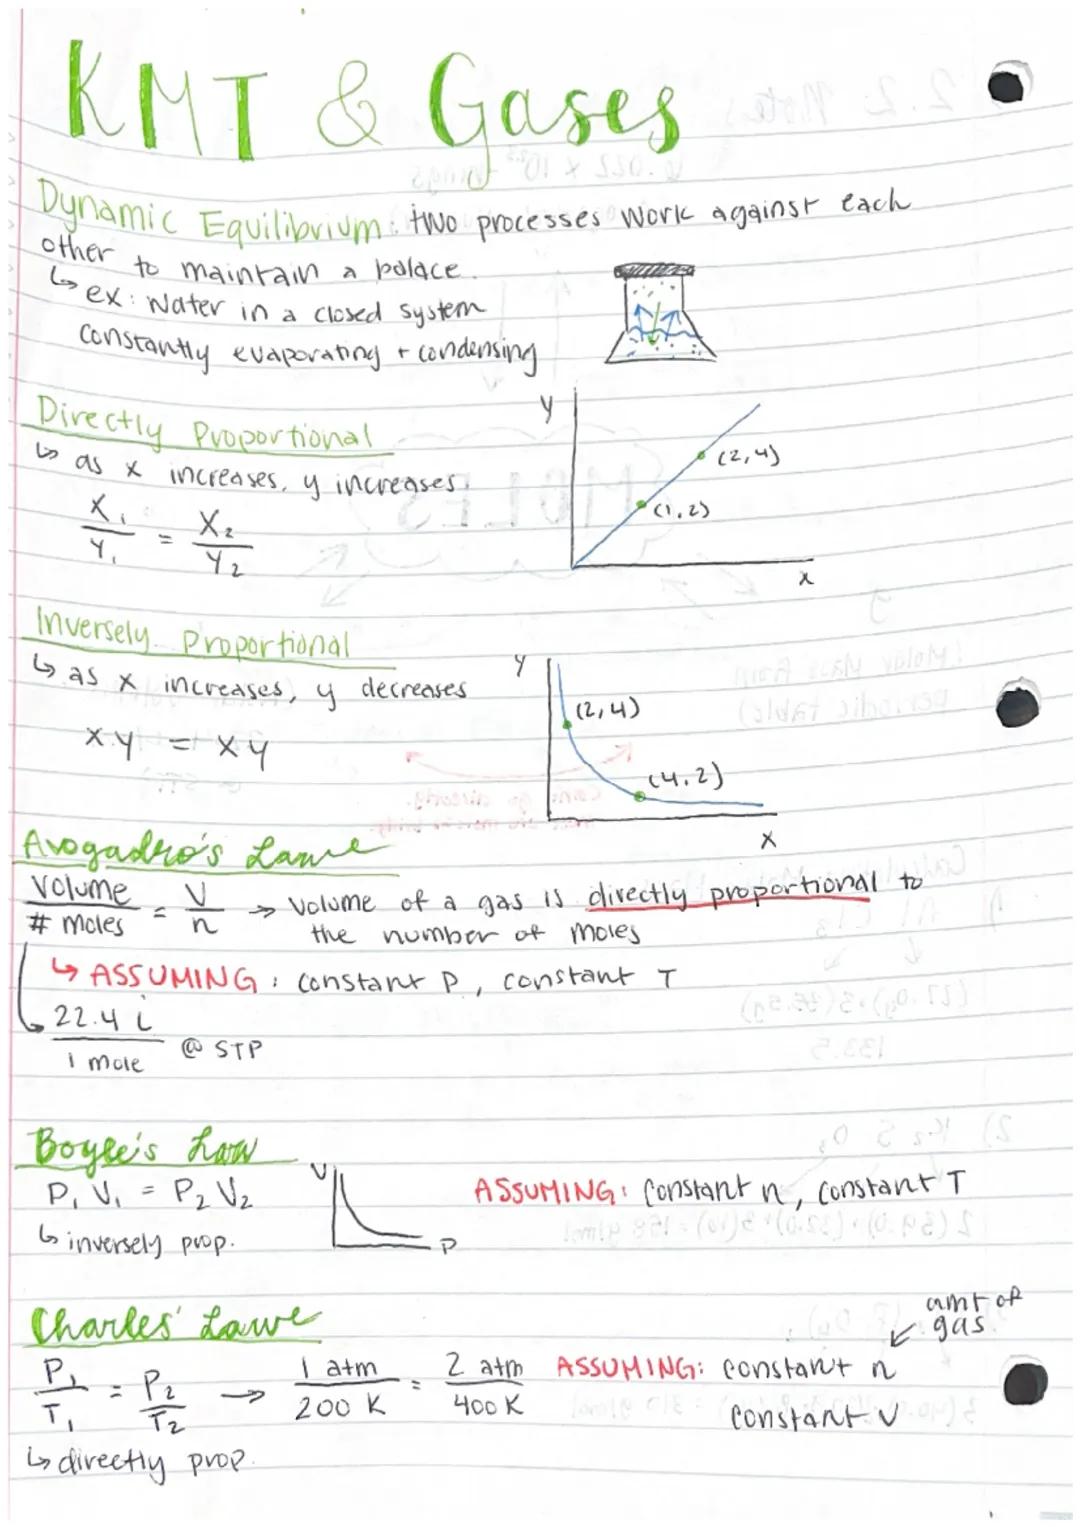 KMT & Gases
Dynamic Equilibrium: two processes work against each
other to maintain a balace.
↳ ex: Water in a closed system
constantly evaporating + condensing
Directly Proportional
↳ as x increases, y increases.
X₁/Y₁ = X₂/Y₂
y
(2,4)
(1,2)
x
Inversely Proportional
↳ as x increases, y decreases
x·y = xy
y
(2,4)
(4,2)
x
Avogadro's Lawe
Volume/# moles = V/n → Volume of a gas is directly proportional to
the number of moles
↳ ASSUMING: constant P, constant T
22.4 L/1 mole @ STP
Boyle's Law
P₁V₁ = P₂V₂
↳ inversely prop.
V
P
ASSUMING: constant n, constant T
Charles' Lawe
amt of
gas
P₁/T₁ = P₂/T₂ → 1 atm/200 K = 2 atm/400 K
ASSUMING: constant n
constant V
↳ directly prop.